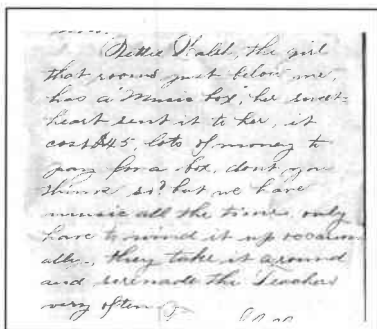 Nettie Walsh, the girl
that rooms just below me,
has a "Music box", her sweet-
heart sent it to her, it
cost $45, lots of money to
pay for a box, don't you
think so? but we have
music all the time, only
have to wind it up occasion
ally, they take it around
and serenade the Teachers
very often